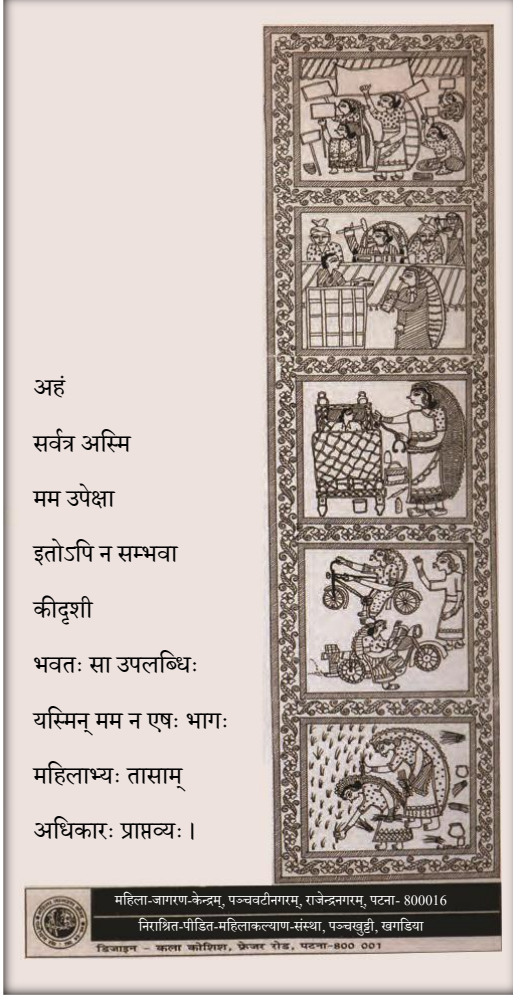 अहं
सर्वत्र अस्मि
मम उपेक्षा
इतोऽपि न सम्भवा
कीदृशी
भवतः सा उपलब्धिः
यस्मिन् मम न एषः भागः
महिलाभ्यः तासाम्
अधिकारः प्राप्तव्यः ।
महिला-जागरण-केन्द्रम्, पञ्चवटीनगरम्, राजेन्द्रनगरम्, पटना- 800016
निराश्रित-पीडित-महिलाकल्याण-संस्था, पञ्चखुट्टी, खगडिया
डिजाइन – कला कोशिश, फ्रेजर रोड, पटना-800 001